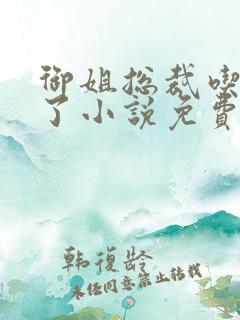 御姐总裁喫
了小説免費
韩復龄
未经同意禁止转载